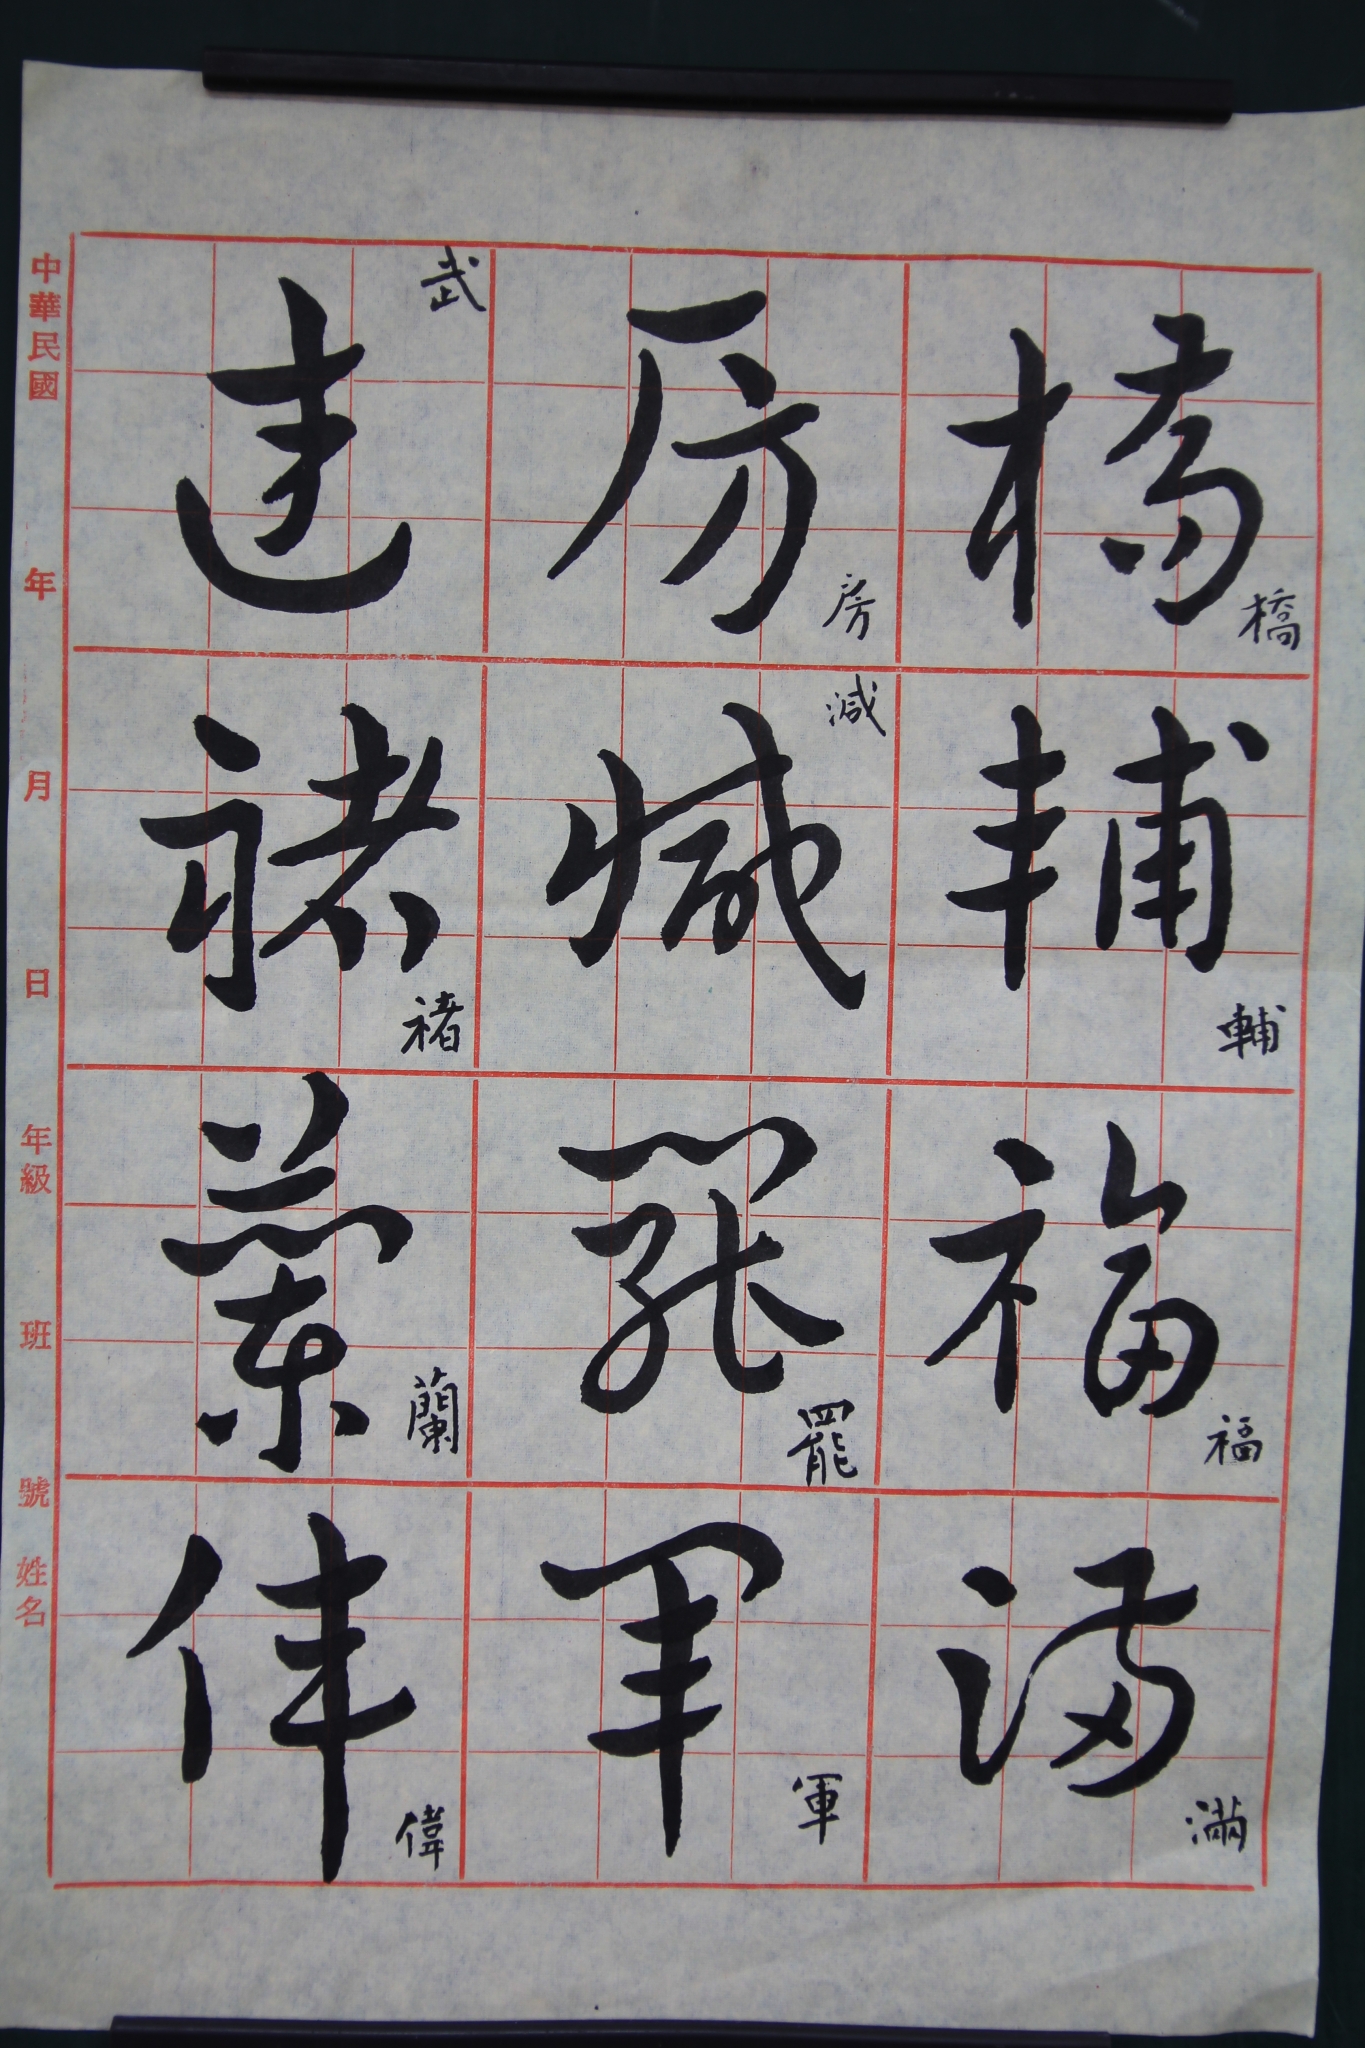 橋輔福滿
橋
輔
福
滿
房減罷軍
房
減
罷
軍
褚蘭偉
武
褚
蘭
偉
中華民國 年 月 日 年級 班 號 姓名